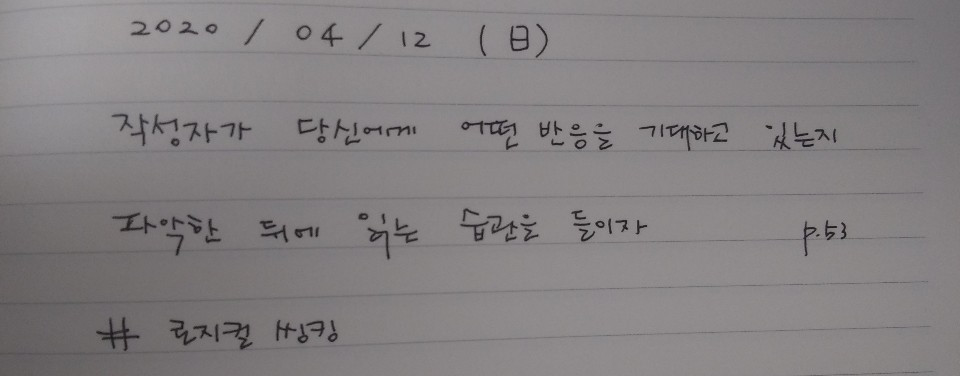 2020 / 04 / 12 (日)
작성자가 당신에게 어떤 반응을 기대하고 있는지
파악한 뒤에 읽는 습관을 들이자 p.53
# 로지컬 씽킹